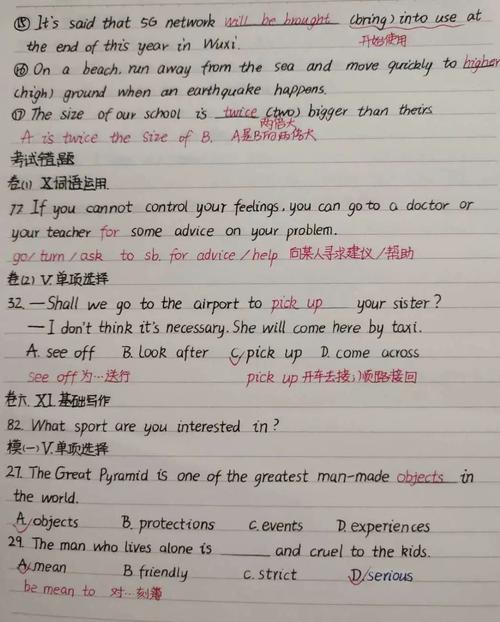 ⑮ It's said that 5G network will be brought (bring) into use at
the end of this year in Wuxi. 开始使用
⑯ On a beach, run away from the sea and move quickly to higher
(high) ground when an earthquake happens.
⑰ The size of our school is twice (two) bigger than theirs.
两倍大
A is twice the size of B. A是B的两倍大
考试错题
卷(1) X词语运用.
77. If you cannot control your feelings, you can go to a doctor or
your teacher for some advice on your problem.
go/turn/ask to sb. for advice/help 向某人寻求建议/帮助
卷(2) V.单项选择
32. —Shall we go to the airport to pick up your sister?
—I don't think it's necessary. She will come here by taxi.
A. see off B. look after C. pick up D. come across
see off 为…送行 pick up 开车去接;顺路接回
卷六. XI. 基础写作
82. What sport are you interested in?
模(一) V.单项选择
27. The Great Pyramid is one of the greatest man-made objects in
the world.
A. objects B. protections C. events D. experiences
29. The man who lives alone is ______ and cruel to the kids.
A. mean B. friendly C. strict D. serious
be mean to 对…刻薄